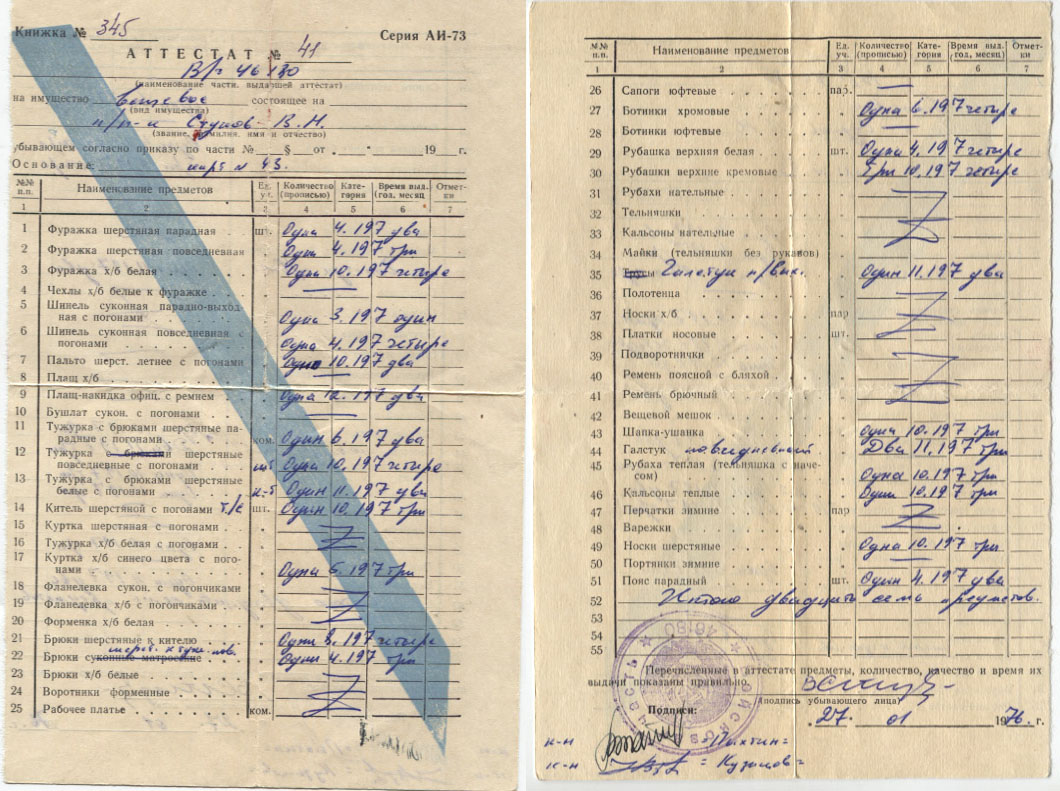 Книжка № 345
Серия АИ-73
АТТЕСТАТ № 41
В/ч 46180
(наименование части, выдавшей аттестат)
на имущество вещевое состоящее на
(вид имущества)
п/п-к Ступов В. Н
(звание, фамилия, имя и отчество)
убывающем согласно приказу по части № § от 19 г.
Основание: № 43.
№№ п.п. Наименование предметов Ед. уч. Количество (прописью) Категория Время выд. (год, месяц) Отметки
1 2 3 4 5 6 7
1 Фуражка шерстяная парадная шт. Одна 4.197 два
2 Фуражка шерстяная повседневная Одна 4.197 три
3 Фуражка х/б белая Одна 10.197 четыре
4 Чехлы х/б белые к фуражке
5 Шинель суконная парадно-выход-
ная с погонами Одна 3.197 один
6 Шинель суконная повседневная с
погонами Одна 4.197 четыре
7 Пальто шерст. летнее с погонами Одно 10.197 два
8 Плащ х/б
9 Плащ-накидка офиц. с ремнем Одна 12.197 два
10 Бушлат сукон. с погонами
11 Тужурка с брюками шерстяные па-
радные с погонами ком. Один 6.197 два
12 Тужурка с брюками шерстяные
повседневные с погонами шт Одна 10.197 четыре
13 Тужурка с брюками шерстяные
белые с погонами к-т Один 11.197 два
14 Китель шерстяной с погонами т/с шт. Один 10.197 три
15 Куртка шерстяная с погонами
16 Тужурка х/б белая с погонами
17 Куртка х/б синего цвета с пого-
нами Одна 5.197 три
18 Фланелевка сукон. с погончиками
19 Фланелевка х/б с погончиками
20 Форменка х/б белая
21 Брюки шерстяные к кителю Одни 3.197 четыре
шерст. к туж. пов.
22 Брюки суконные матросские Одни 4.197 три
23 Брюки х/б белые
24 Воротники форменные
25 Рабочее платье ком.
№№ п.п. Наименование предметов Ед. уч. Количество (прописью) Категория Время выд. (год, месяц) Отметки
1 2 3 4 5 6 7
26 Сапоги юфтевые пар.
27 Ботинки хромовые Одна 6.197 четыре
28 Ботинки юфтевые
29 Рубашка верхняя белая шт. Одна 4.197 четыре
30 Рубашки верхние кремовые Три 10.197 четыре
31 Рубахи нательные
32 Тельняшки
33 Кальсоны нательные
34 Майки (тельняшки без рукавов)
35 Трусы Галстук п/вых. Один 11.197 два
36 Полотенца
37 Носки х/б пар
38 Платки носовые шт.
39 Подворотнички
40 Ремень поясной с бляхой
41 Ремень брючный
42 Вещевой мешок
43 Шапка-ушанка Одна 10.197 три
44 Галстук повседневный Два 11.197 три
45 Рубаха теплая (тельняшка с наче-
сом) Одна 10.197 три
46 Кальсоны теплые Одни 10.197 три
47 Перчатки зимние пар
48 Варежки
49 Носки шерстяные Одна 10.197 три
50 Портянки зимние
51 Пояс парадный шт. Один 4.197 два
52 Итого двадцать семь предметов.
53
54
55
Перечисленные в аттестате предметы, количество, качество и время их
выдачи показаны правильно.
(подпись убывающего лица)
Подписи:
27. 01 1976 г.
к-н =Пихтин=
к-н =Кузнецов=
46180
ВОЙСКОВАЯ ЧАСТЬ